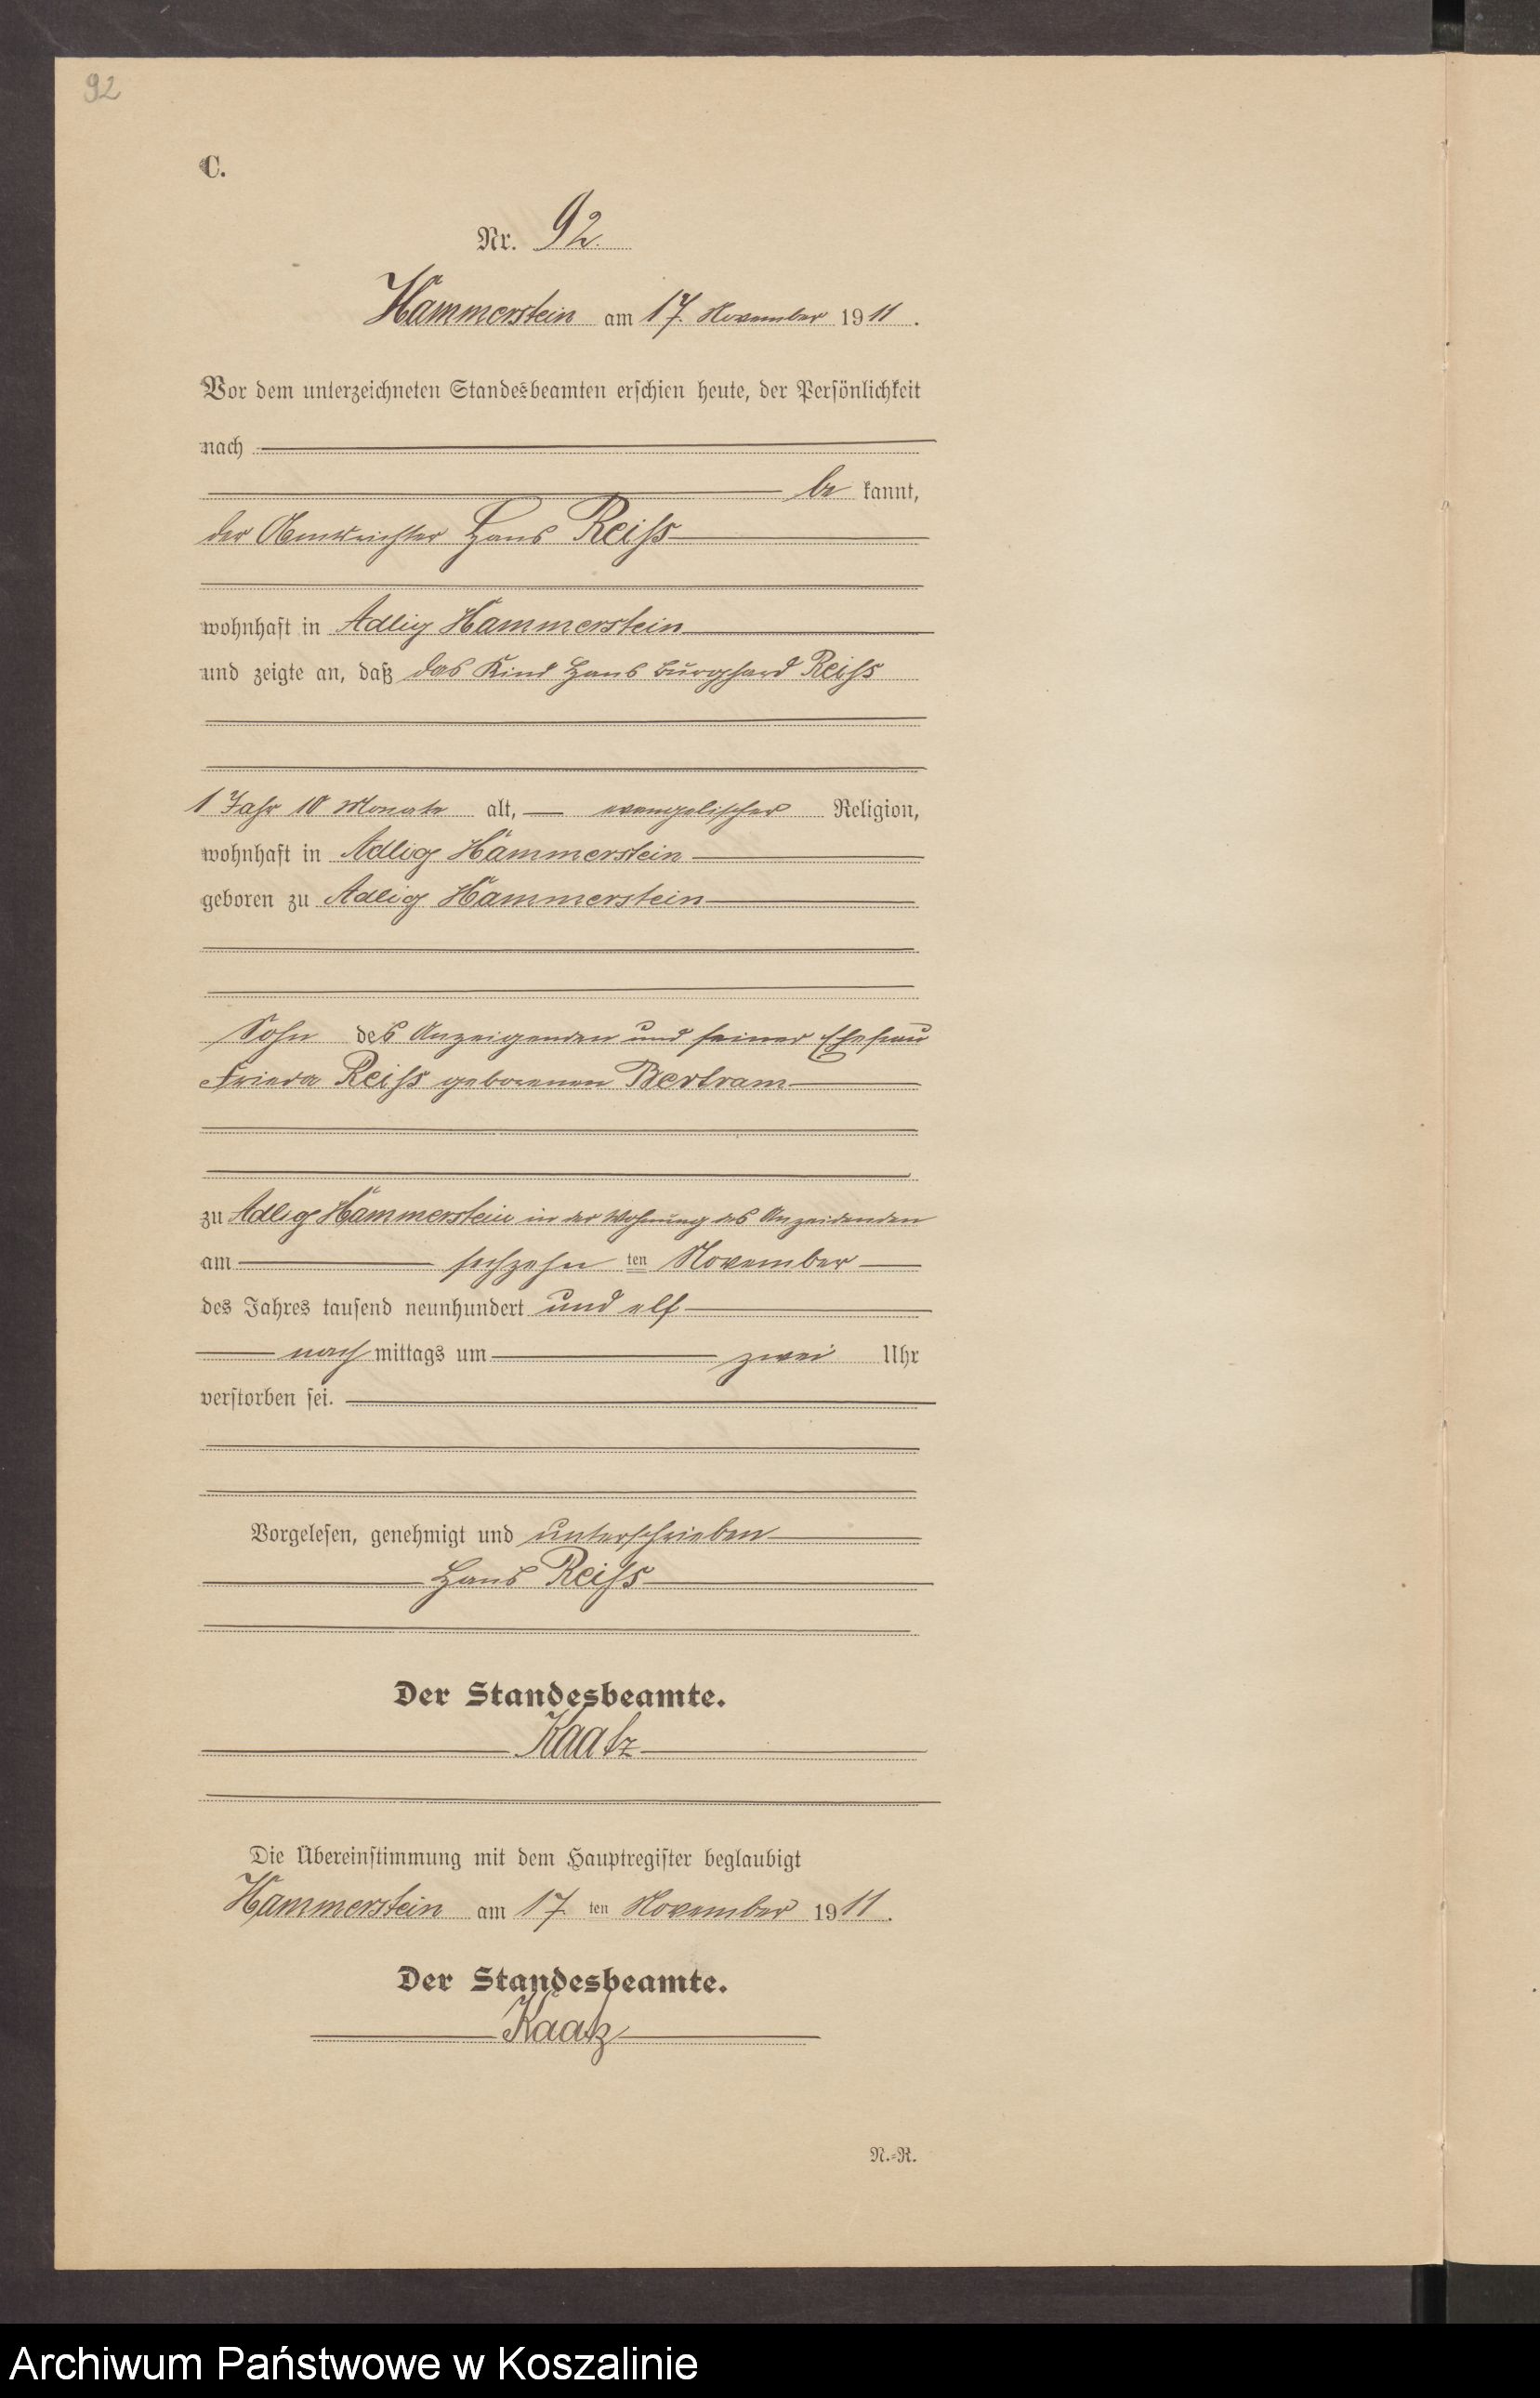 92
C.
Nr. 92.
Hammerstein am 17. November 1911.
Vor dem unterzeichneten Standesbeamten erschien heute, der Persönlichkeit
nach
be kannt,
der Hans Reiss
wohnhaft in Adlig Hammerstein
und zeigte an, daß das Kind Hans Burghard Reiss
1 Jahr 10 Monate alt, evangelischer Religion,
wohnhaft in Adlig Hammerstein
geboren zu Adlig Hammerstein
Sohn des Anzeigenden und seiner Ehefrau
Frieda Reiss geborenen Bertram
zu Adlig Hammerstein in der Wohnung des Anzeidenden
am sechzehn ten November
des Jahres tausend neunhundert und elf
nach mittags um zwei Uhr
verstorben sei.
Vorgelesen, genehmigt und unterschrieben
Hans Reiss
Der Standesbeamte.
Kaatz
Die Übereinstimmung mit dem Hauptregister beglaubigt
Hammerstein am 17 ten November 1911.
Der Standesbeamte.
Kaatz
N.=R.
Archiwum Państwowe w Koszalinie